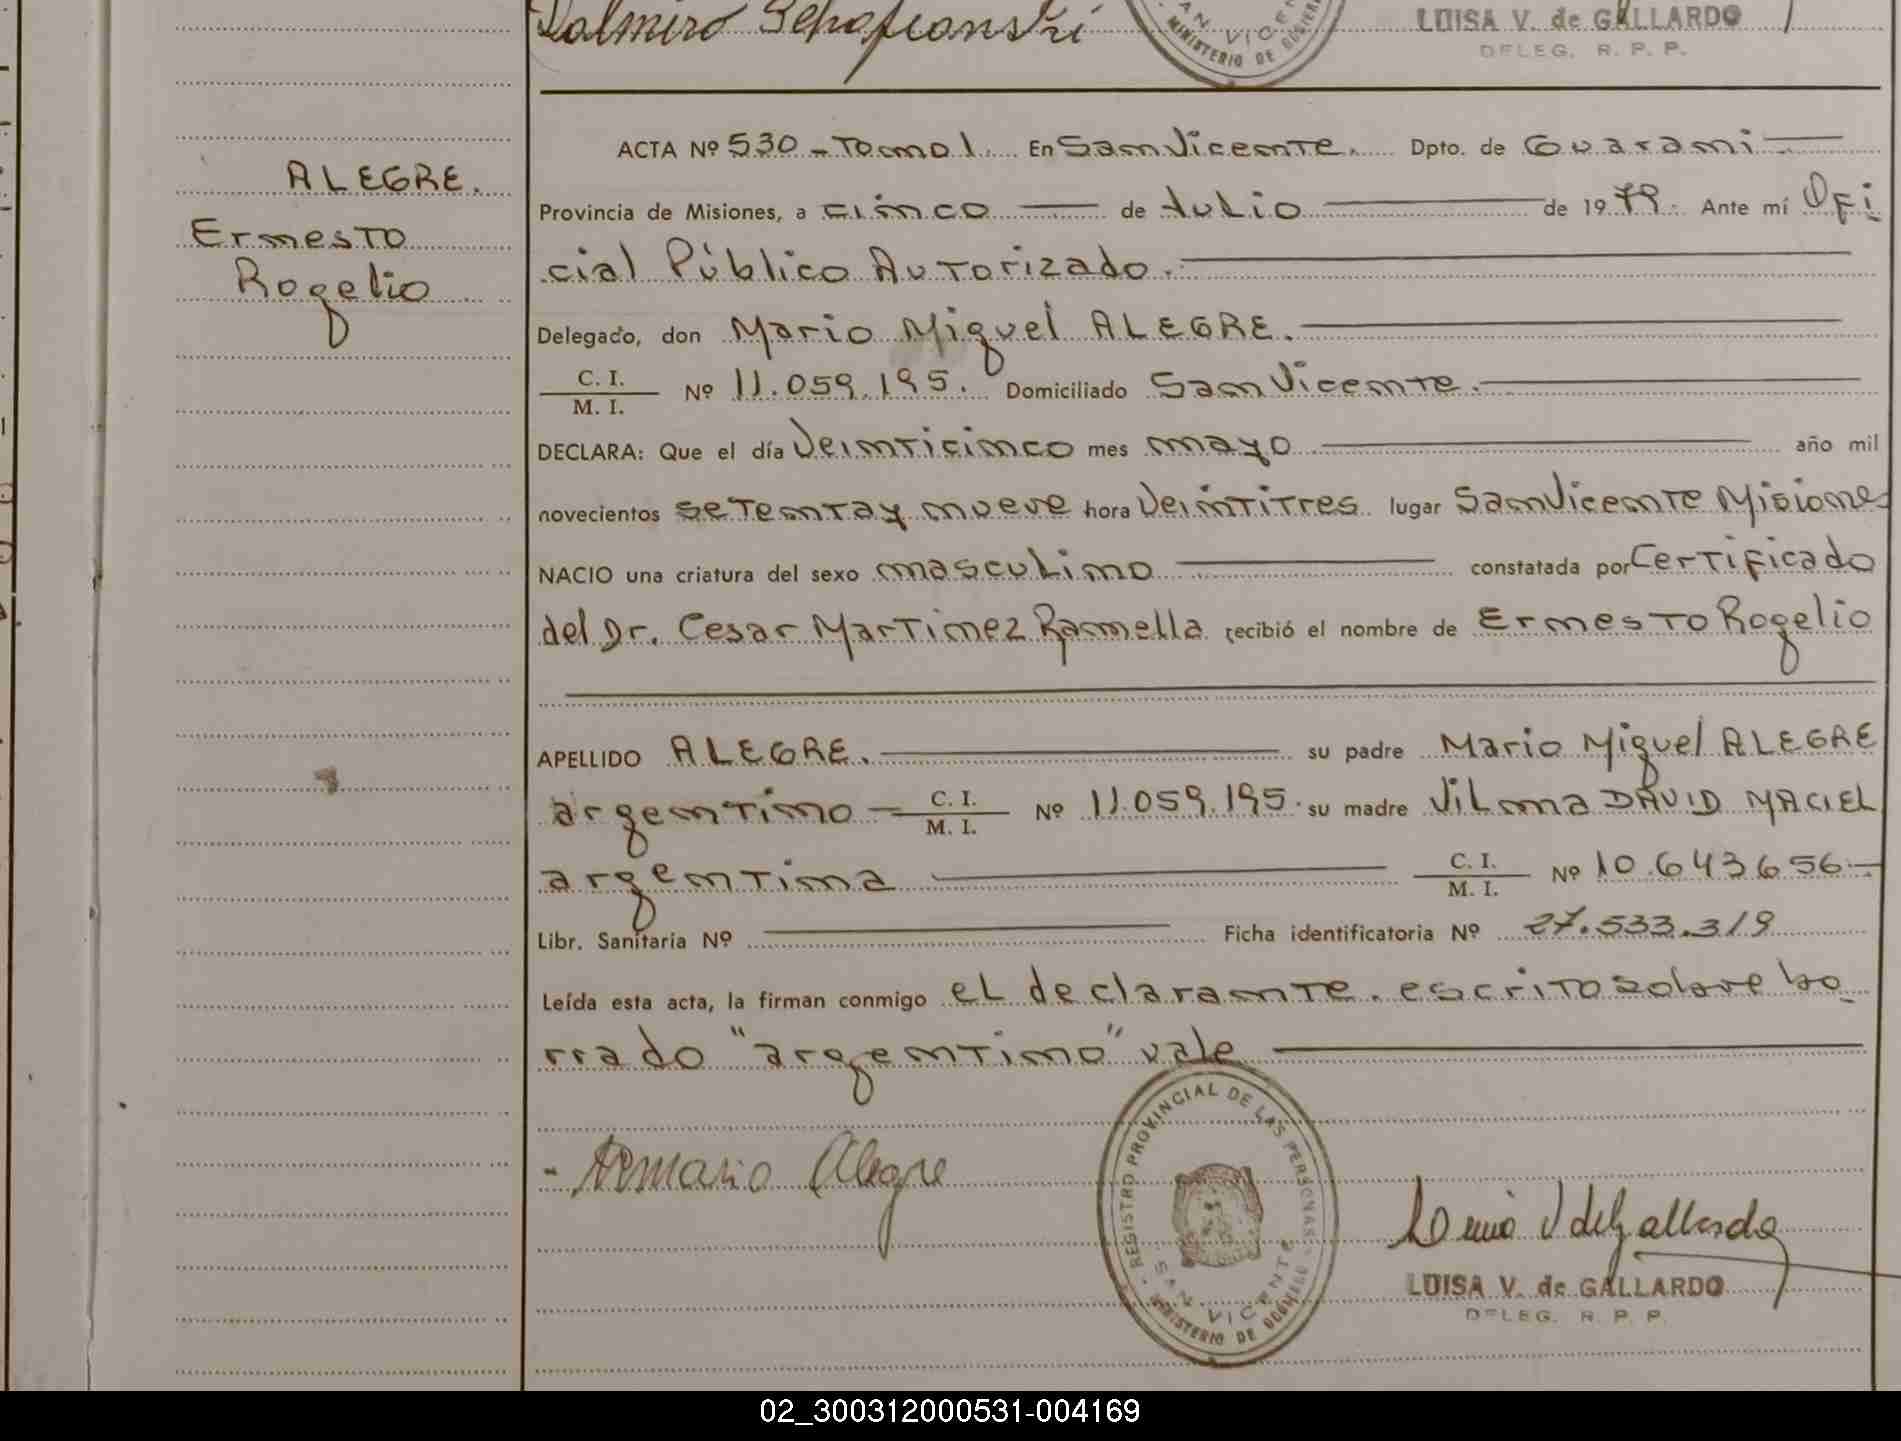 Dalmiro Schafianski
SAN VICENTE
MINISTERIO DE GOBIERNO
LUISA V. de GALLARDO
DELEG. R. P. P.
ALEGRE.
Ernesto
Rogelio
ACTA Nº 530 - Tomo 1. En San Vicente. Dpto. de Guarani
Provincia de Misiones, a cinco de Julio de 1979. Ante mí Ofi
cial Público Autorizado.
Delegado, don Mario Miguel ALEGRE.
C. I. / M. I. Nº 11.059.195. Domiciliado San Vicente.
DECLARA: Que el día Veinticinco mes mayo año mil
novecientos setenta y nueve hora Veintitres lugar San Vicente Misiones
NACIO una criatura del sexo masculino constatada por Certificado
del Dr. Cesar Martinez Ramella recibió el nombre de Ernesto Rogelio
APELLIDO ALEGRE. su padre Mario Miguel ALEGRE
argentino - C. I. / M. I. Nº 11.059.195. su madre Vilma DAVID MACIEL
argentina C. I. / M. I. Nº 10.643656.-
Libr. Sanitaria Nº Ficha identificatoria Nº 27.533.319
Leída esta acta, la firman conmigo el declarante. escrito sobre bo
rrado "argentino" vale
Alegre
REGISTRO PROVINCIAL DE LAS PERSONAS
SAN VICENTE
MINISTERIO DE GOBIERNO
Luisa V de Gallardo
LUISA V. de GALLARDO
DELEG. R. P. P.
02_300312000531-004169